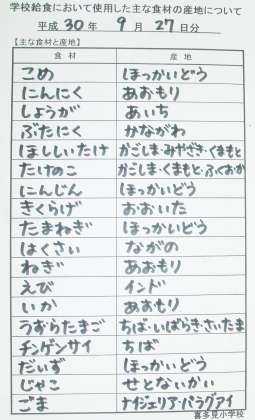 学校給食において使用した主な食材の産地について
平成 30 年 9 月 27 日分
【主な食材と産地】
食材 産地
こめ ほっかいどう
にんにく あおもり
しょうが あいち
ぶたにく かながわ
ほししいたけ かごしま・みやざき・くまもと
たけのこ かごしま・くまもと・ふくおか
にんじん ほっかいどう
きくらげ おおいた
たまねぎ ほっかいどう
はくさい ながの
ねぎ あおもり
えび インド
いか あおもり
うずらたまご ちば・いばらき・さいたま
チンゲンサイ ちば
だいず ほっかいどう
じゃこ せとないかい
ごま ナイジェリア・パラグアイ
喜多見小学校